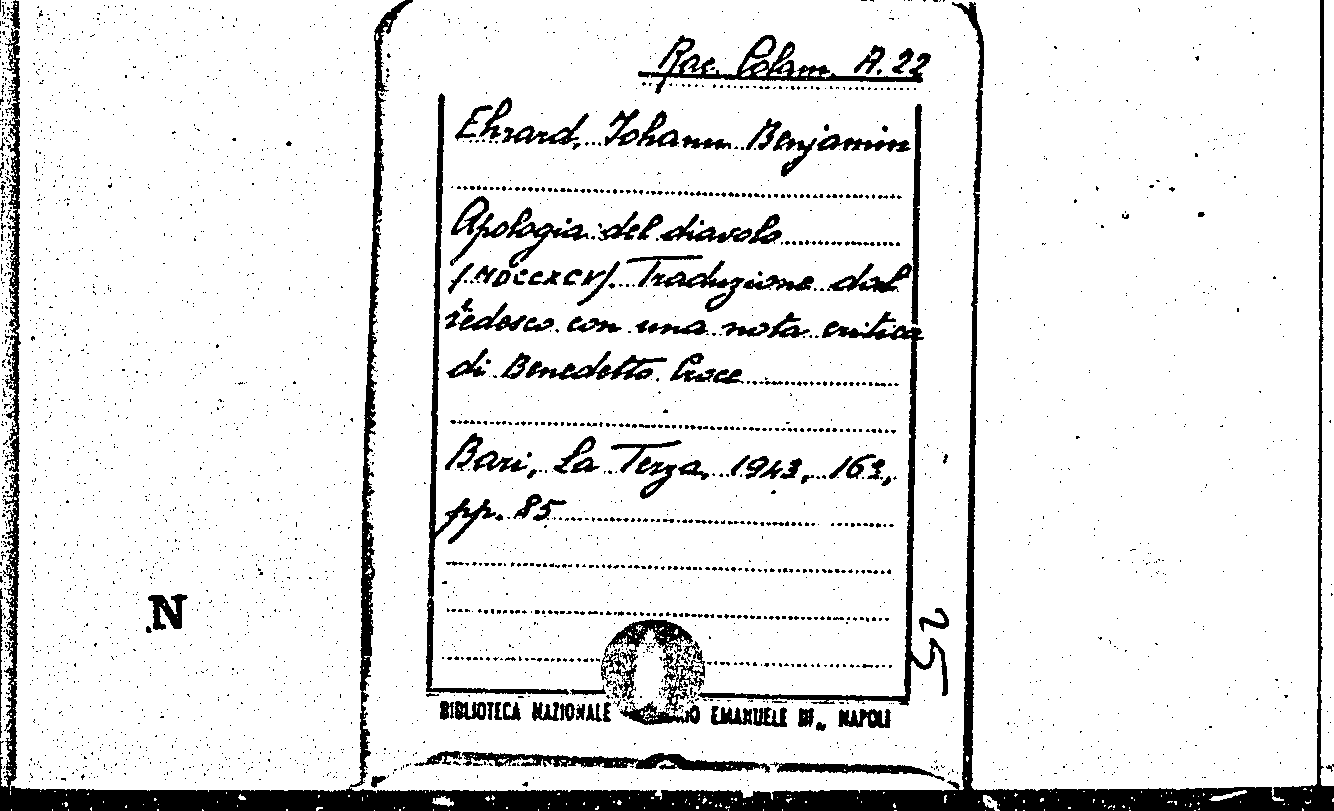 Rac. Colam. A. 22
Ehrard, Johann Benjamin
Apologia del diavolo
(MDCCXCV). Traduzione dal
tedesco con una nota critica
di Benedetto Croce
Bari, La Terza, 1943, 163,
pp. 85
N
25
BIBLIOTECA NAZIONALE EMANUELE III„ NAPOLI